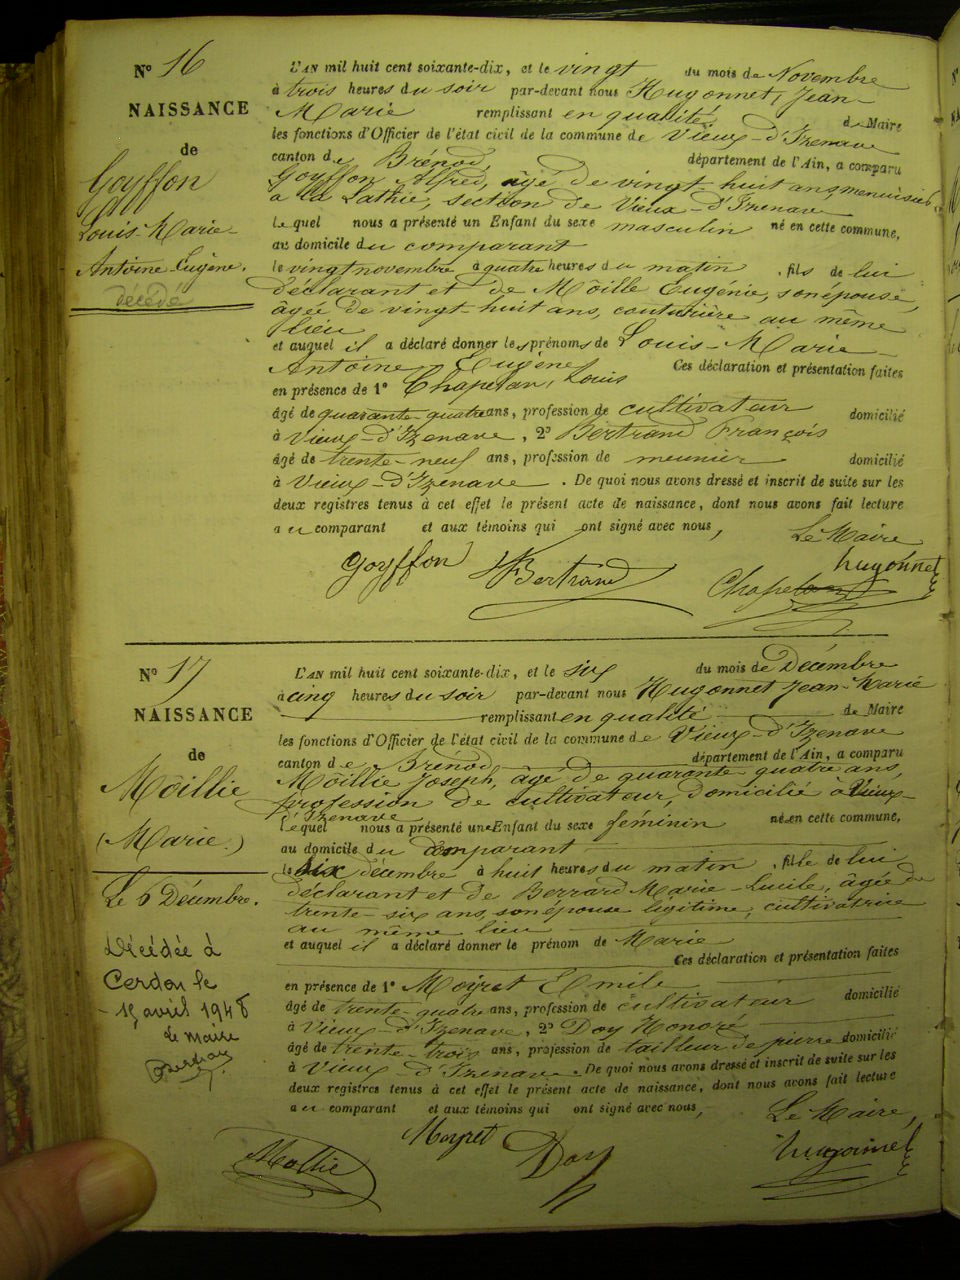 N° 16
NAISSANCE
de
Goyffon
Louis-Marie-
Antoine Eugène.
décédé
L'AN mil huit cent soixante-dix, et le vingt du mois de Novembre
à trois heures du soir par-devant nous Hugonnet, Jean-
Marie remplissant en qualité de Maire
les fonctions d'Officier de l'état civil de la commune de Vieux-d'Izenave
canton de Brénod, département de l'Ain, a comparu
Goyffon Alfred, âgé de vingt-huit ans, menuisier,
à la Lathie, section de Vieux-d'Izenave
lequel nous a présenté un Enfant du sexe masculin né en cette commune,
au domicile du comparant
le vingt novembre à quatre heures du matin, fils de lui
déclarant et de Môille Eugénie, son épouse,
âgée de vingt-huit ans, couturière au même
lieu
et auquel il a déclaré donner les prénoms de Louis-Marie-
Antoine Eugène Ces déclaration et présentation faites
en présence de 1° Chapelan, Louis
âgé de quarante-quatre ans, profession de cultivateur domicilié
à Vieux-d'Izenave, 2° Bertrand François
âgé de trente-neuf ans, profession de meunier domicilié
à Vieux-d'Izenave. De quoi nous avons dressé et inscrit de suite sur les
deux registres tenus à cet effet le présent acte de naissance, dont nous avons fait lecture
au comparant et aux témoins qui ont signé avec nous,
Le Maire
Goyffon Bertrand Hugonnet
Chapelan
N° 17
NAISSANCE
de
Môillie
(Marie.)
Le 6 Décembre.
Décédée à
Cerdon le
15 avril 1948
Le Maire
L'AN mil huit cent soixante-dix, et le six du mois de Décembre
à cinq heures du soir par-devant nous Hugonnet Jean-Marie
remplissant en qualité de Maire
les fonctions d'Officier de l'état civil de la commune de Vieux-d'Izenave
canton de Brénod département de l'Ain, a comparu
Môillie Joseph, âgé de quarante-quatre ans,
profession de cultivateur, domicilié à Vieux-
d'Izenave
lequel nous a présenté un Enfant du sexe féminin né en cette commune,
au domicile du comparant
le six décembre à huit heures du matin, fille de lui
déclarant et de Berrard Marie-Lucile, âgée de
trente-six ans, son épouse légitime, cultivatrice
au même lieu
et auquel il a déclaré donner le prénom de Marie
Ces déclaration et présentation faites
en présence de 1° Moyret Emile
âgé de trente-quatre ans, profession de cultivateur domicilié
à Vieux-d'Izenave, 2° Doy Honoré
âgé de trente-trois ans, profession de tailleur de pierre domicilié
à Vieux-d'Izenave. De quoi nous avons dressé et inscrit de suite sur les
deux registres tenus à cet effet le présent acte de naissance, dont nous avons fait lecture
au comparant et aux témoins qui ont signé avec nous,
Le Maire,
Moyret Doy Hugonnet
Mollie